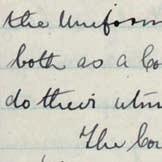 the Uniform
both as a Co
do their utm
The Co